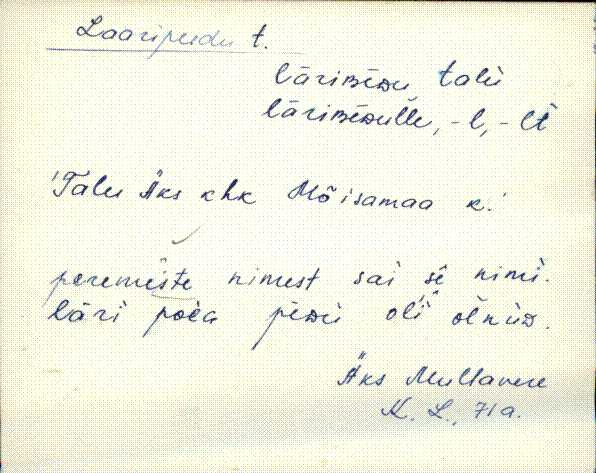 Laaripeedu t.
lär̀ipèedu, talu
läripèedulle, -l, -lt
'Talu Äks khk Mõisamaa k.'
peremèste nimest sai sè nimi.
läri poea pèedu oli òlnud.
Äks Mullavere
K. L., 71 a.